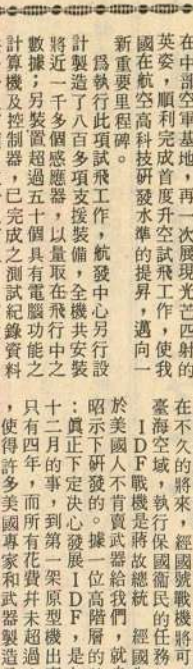 在中部空軍基地，再一次展現光芒四射的
英姿，順利完成首度升空試飛工作，使我
國在航空高科技研發水準的提昇，邁向一
新重要里程碑。
爲執行此項試飛工作，航發中心另行設
計製造了八百多項支援裝備，全機共安裝
將近一千多個感應器，以量取在飛行中之
數據；另裝置超過五十個具有電腦功能之
計算機及控制器，已完成之測試紀錄資料
在不久的將來，經國號戰機將可
臺海空域，執行保國衞民的任務
ＩＤＦ戰機是將故總統　經國
於美國人不肯賣武器給我們，就
昭示下研發的。據一位高階層的
：眞正下定決心發展ＩＤＦ，是
十二月的事，到第　架原型機出
只有四年，而所有花費幷未超過
，使得許多美國專家和武器製造